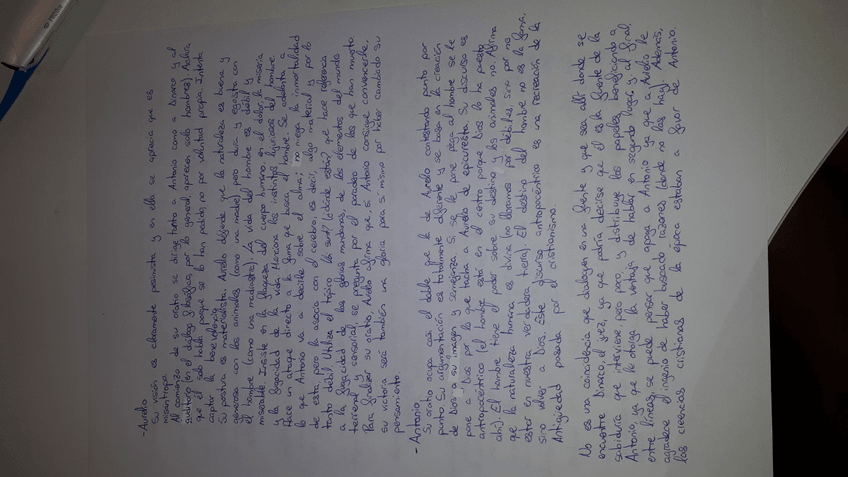 - Aurelio
Su visión es claramente pesimista y en ella se aprecia que es
misántropo.
Al comienzo de su oratio se dirige tanto a Antonio como a Dinarco y al
auditorio (en el diálogo filosófico, por lo general, aparecen solo hombres). Aclara
que él solo habla porque se lo han pedido, no por voluntad propia. Intenta
captar la benevolencia.
Su postura es materialista. Aurelio defiende que la naturaleza es buena y
generosa con los animales (como una madre) pero dura y egoísta con
el hombre (como una madrastra). La vida del hombre es débil y
miserable. Insiste en la flaqueza del cuerpo humano, en el dolor, la miseria
y la fugacidad de la vida. Menciona los instintos del hombre.
Hace un ataque directo a la fama que busca el hombre. Se adelanta a
lo que Antonio va a decirle sobre el alma; no niega la inmortalidad
de esta, pero la asocia con el cerebro, es decir, algo material y por lo
tanto débil. Utiliza el tópico Ubi sunt? (¿dónde están? que hace referencia
a la fugacidad de las glorias mundanas, de los elementos del mundo
terrenal y sensorial, se pregunta por el paradero de los que han muerto.
Para finalizar su oratio, Aurelio afirma que, si Antonio consigue convencerle,
su victoria será también una gloria para sí mismo por haber cambiado su
pensamiento.
- Antonio
Su oratio ocupa casi el doble que la de Aurelio contestando punto por
punto. Su argumentación es totalmente diferente y se basa en la creación
de Dios a su imagen y semejanza. Si se le pone pega al hombre se le
pone a Dios por lo que tacha a Aurelio de epicureísta. Su discurso es
antropocéntrico (el hombre está en el centro porque Dios lo ha puesto
ahí). El hombre tiene el poder sobre su destino y los animales no. Afirma
que la naturaleza humana es divina (no lloramos por débiles, sino por no
estar en nuestra verdadera tierra). El destino del hombre no es la fama,
sino volver a Dios. Este discurso antropocéntrico es una recreación de la
Antigüedad pasada por el cristianismo.
No es una coincidencia que dialoguen en una fuente y que sea allí donde se
encuentre Dinarco, el juez, ya que podría decirse que él es la fuente de la
sabiduría que interviene pero poco, y distribuye los papeles beneficiando a
Antonio, ya que le otorga la ventaja de hablar en segundo lugar y al final,
entre líneas, se puede pensar que apoya a Antonio ya que a Aurelio le
agradece el ingenio de haber buscado razones (donde no las hay). Además,
las creencias cristianas de la época estaban a favor de Antonio.